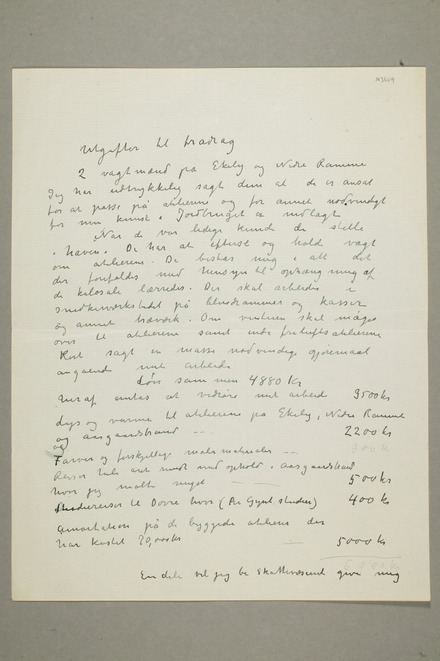 N3649
Utgifter til fradrag
2 vagtmænd på Ekely og Nedre Ramme
Jeg har udtrykkelig sagt dem at de er ansat
for at passe på atelierne og for annet nødvendigt
for min kunst. Jordbruget er nedlagt
Når de var ledige kunde de stelle
i haven. De har at efterse og holde vagt
om atelierne. De bistår mig i alt det
der forefaldes med hensyn til ophæng ning af
de kolosale lærreder. Der skal arbeides i
snedkerværkstedet på blendrammer og kasser
og annet træværk. Om vinteren skal måges
over til atelierne samt inde friluftsatelierne
Kort sagt en masse nødvendige gjøremaal
angaaende mit arbeide
Løn sammen 4880 Kr
Heraf antas at vedrøre mit arbeide 3500 kr
Lys og varme til atelierne på Ekely, Nedre Ramme
og Aasgaardstrand — 2200 kr
Farver og forskjellige malematerialer —
Reiser hele året rundt med ophold i Aasgaardstrand
hvor jeg malte meget — — 500 kr
Studiereiser til Dovre hvor (Per Gynt studier) 400 kr
Amortation på de byggede atelierer der
har kostet 70,000 kr — 5000 kr
En del vil jeg be Skattevæsenet give mig